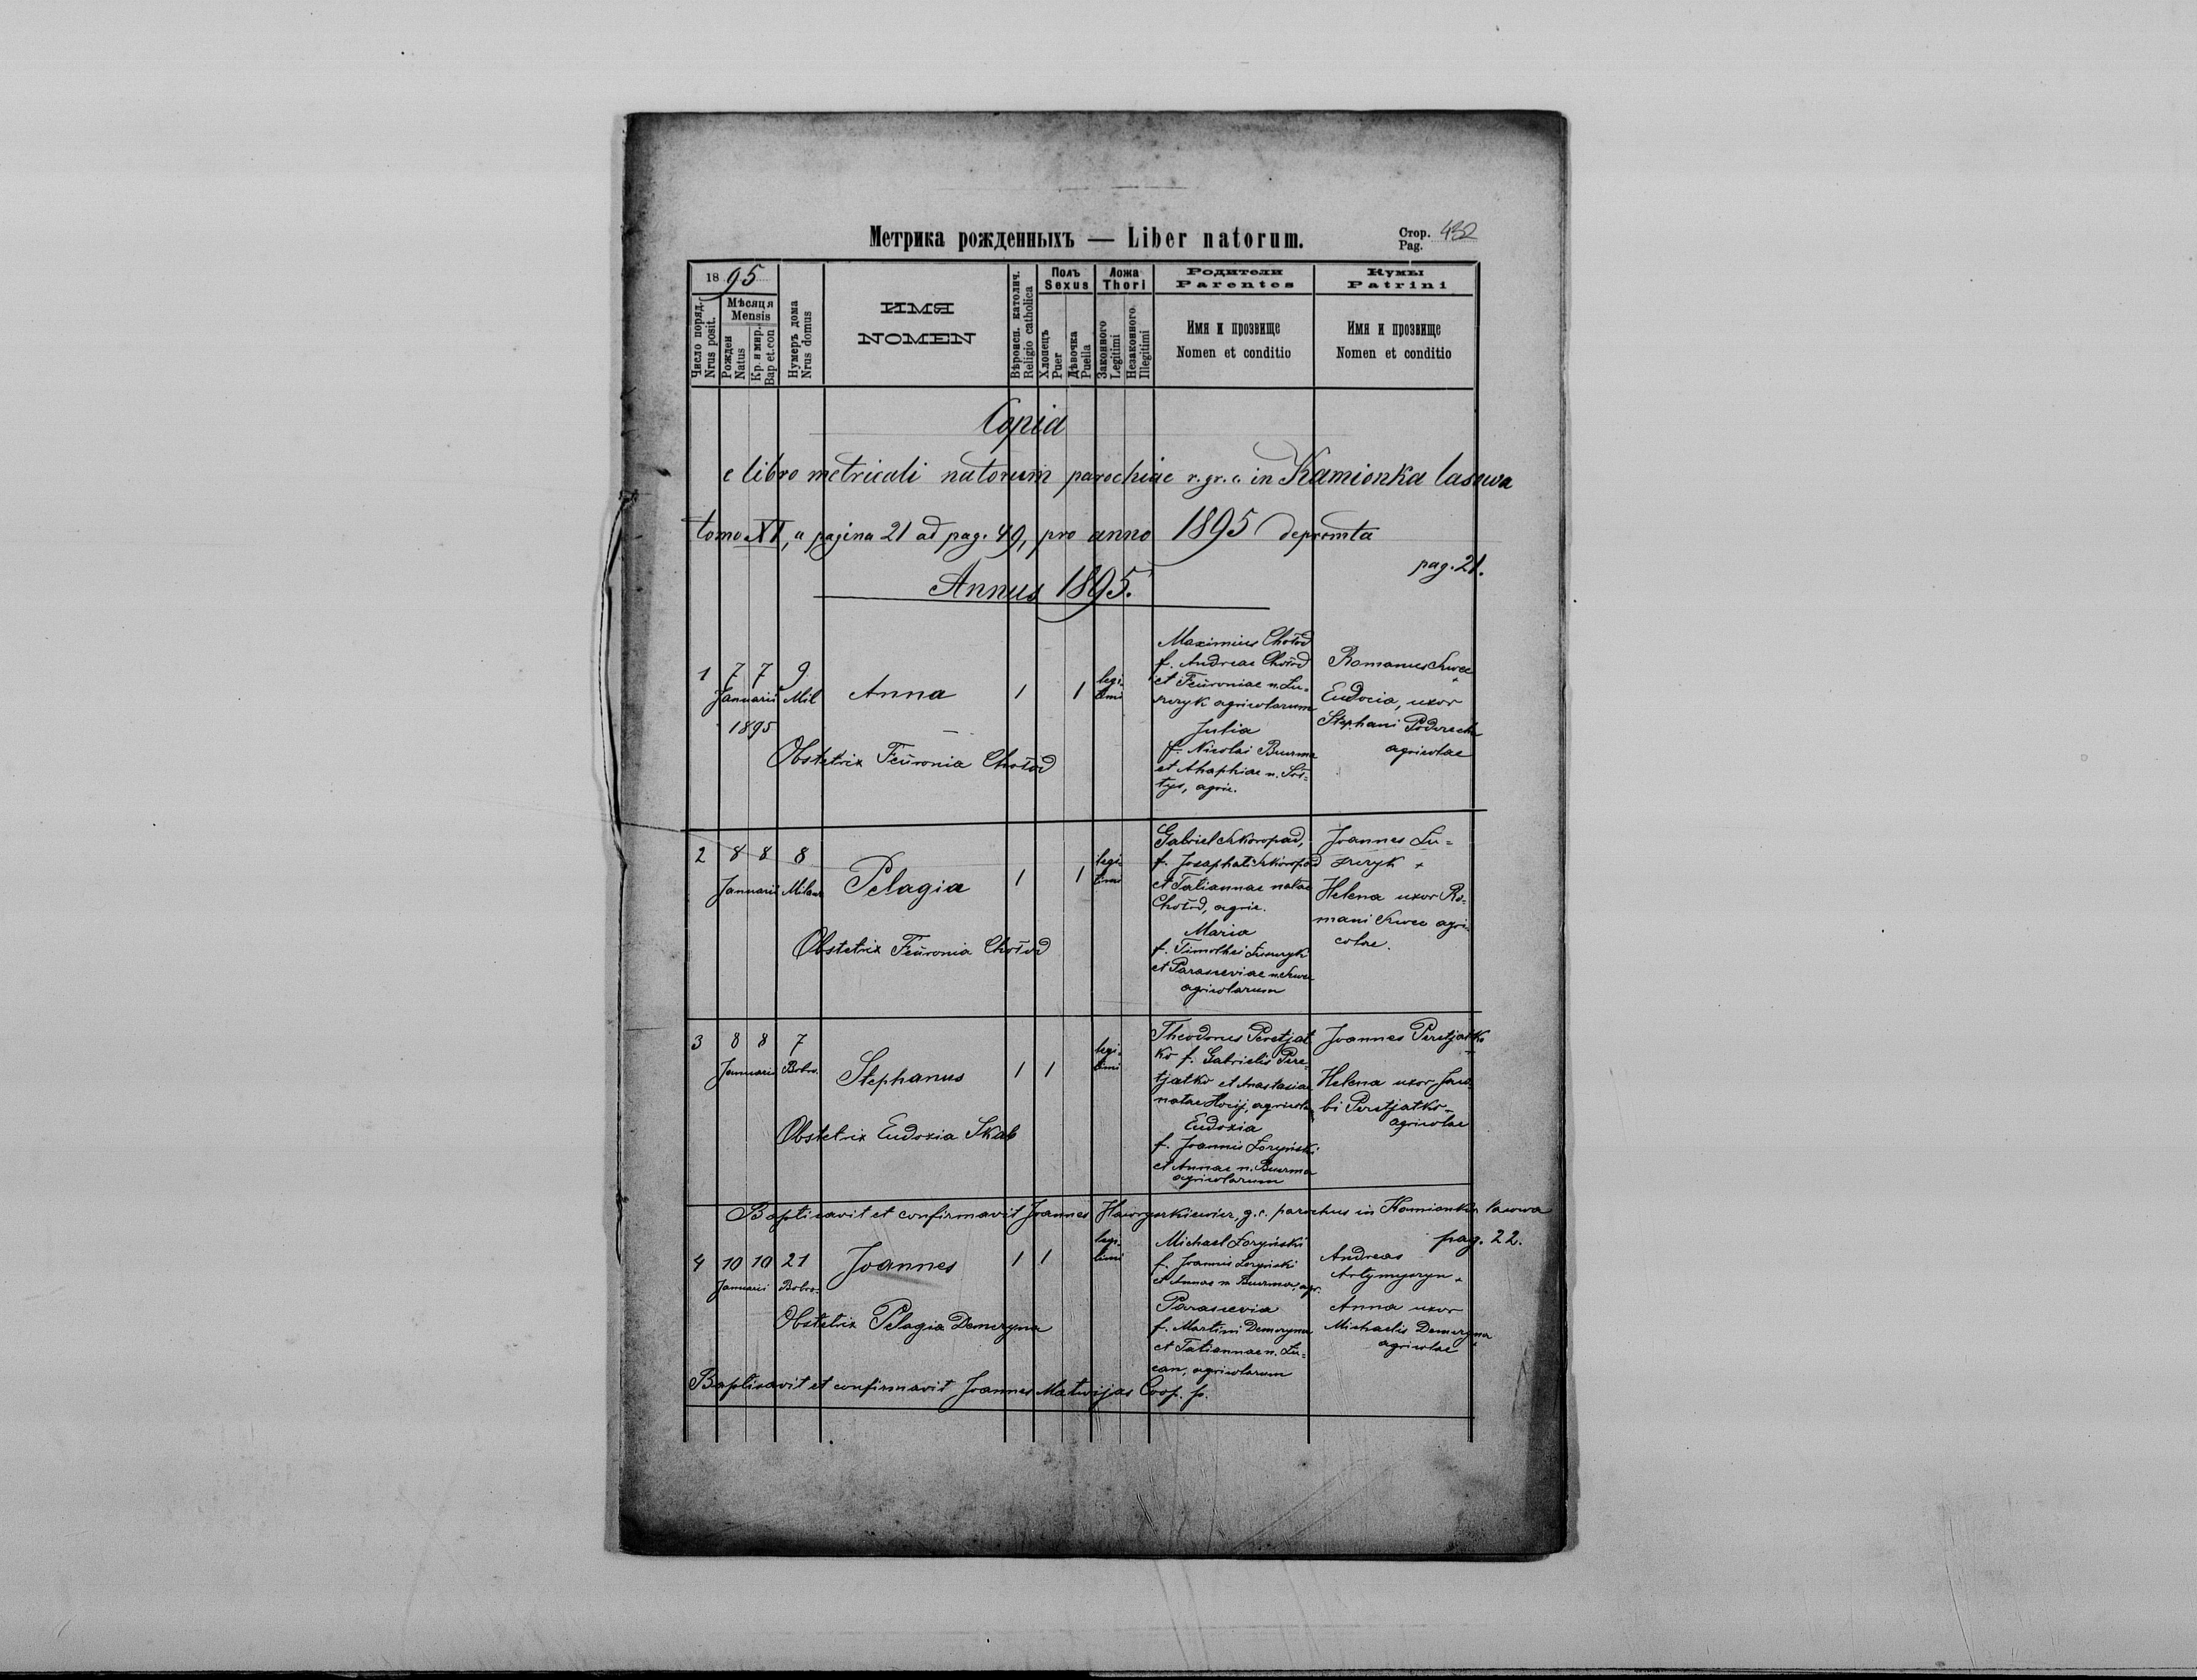 Метрика рожденныхъ — Liber natorum.
Стор. 432
Pag.
1895
Мѣсяця
Mensis
Число поряд.
Nrus posit.
Рожден
Natus
Кр. и мир.
Bap et.con
Нумеръ дома
Nrus domus
ИМЯ
NOMEN
Вѣроисп. католич.
Religio catholica
Полъ
Sexus
Хлопецъ
Puer
Дѣвочка
Puella
Ложа
Thori
Законного
Legitimi
Незаконного.
Illegitimi
Родители
Parentes
Имя и прозвище
Nomen et conditio
Кумы
Patrini
Имя и прозвище
Nomen et conditio
Copia
e libro metricali natorum parochiae r. gr. c. in Kamionka lasowa
tomo XI, a pagina 21 ad pag. 49, pro anno 1895 depromta
pag. 21.
Annus 1895.
1 7 7 9
Januarii Mil
1895
Anna
1 1
legi-
timi
Obstetrix Feuronia Chołod
Maximius Chołod
f. Andreae Chołod
et Feuroniae n. Lu-
szczyk agricolarum
Julia
f. Nicolai Buurma
et Ahaphiae n.
agric.
Romanus Szwec
+
Eudocia, uxor
Stephani
agricolae
2 8 8 8
Januarii
Pelagia
1 1
legi-
timi
Obstetrix Feuronia Chołod
Gabriel Szkoropad,
f. Josaphat Szkoropad
et Tatiannae natae
Chołod, agric.
Maria
f. Timothei Łuszczyk
et Parasceviae n. Szwec
agricolarum
Joannes Łu-
szczyk +
Helena uxor Ro-
mani Szwec agri-
colae.
3 8 8 7
Januarii Bobro.
Stephanus
1 1
legi-
timi
Obstetrix Eudoxia Skab
Theodorus Peretjat
ko f. Gabrielis Pere-
tjatko et Anastasiae
natae agricola
Eudoxia
f. Joannis Łozyński
et Annae n. Buurma
agricolarum
Joannes Peretjatko
Helena uxor Jaco-
bi Peretjatko
agricolae
Baptisavit et confirmavit Joannes g. c. parochus in Kamionka lasowa
pag. 22.
4 10 10 21
Januarii Bobro.
Joannes
1 1
legi-
timi
Obstetrix Pelagia Demczyna
Michael Łozyński
f. Joannis Łozyński
et Annae n. Buurma, agr.
Parascevia
f. Martini Demczyna
et Tatiannae n. Łu-
can, agricolarum
Andreas
+
Anna uxor
Michaelis Demczyna
agricolae
Baptisavit et confirmavit Joannes Matwijas Coop. p.